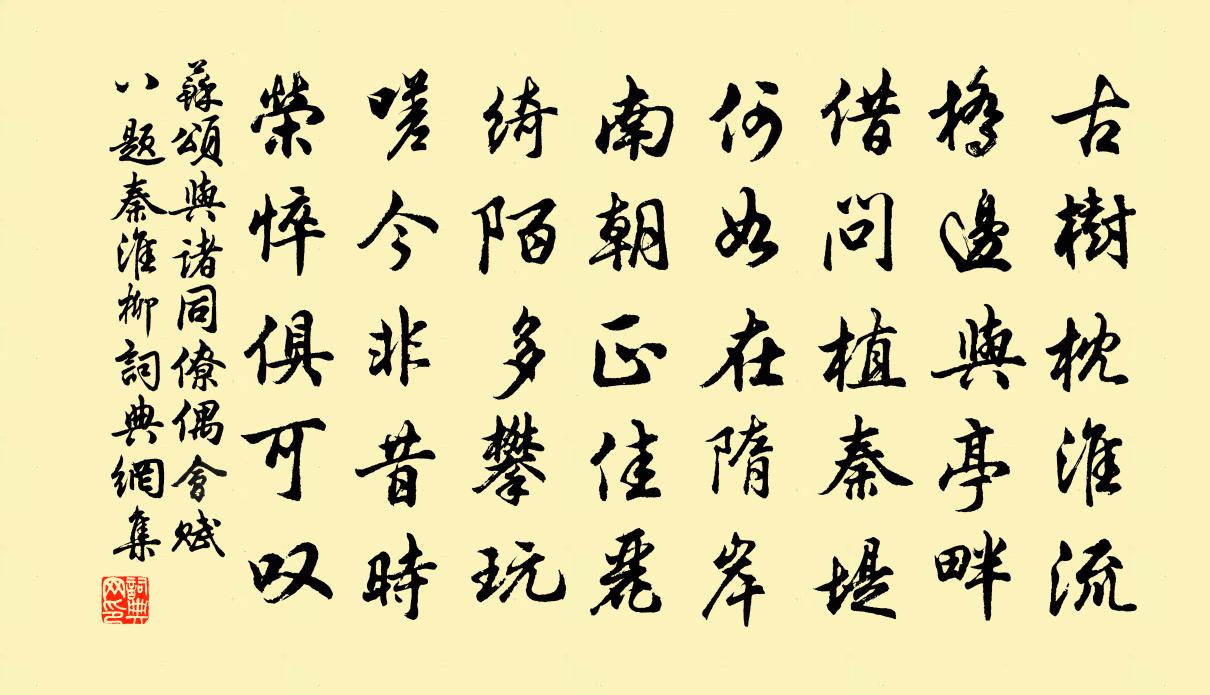 古樹枕淮流
橋邊與亭畔
借問植秦堤
何如在隋岸
南朝正佳麗
綺陌多攀玩
嗟今非昔時
榮悴俱可叹
蘇頌與諸同僚偶會賦
八題秦淮柳詞典網集
詞典
网印